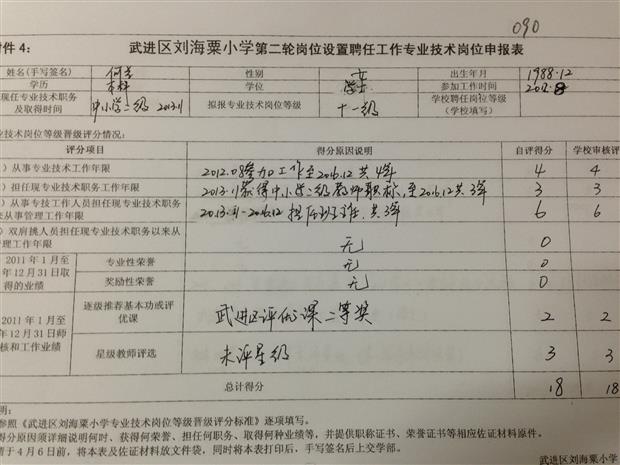 090
附件 4：
武进区刘海粟小学第二轮岗位设置聘任工作专业技术岗位申报表
姓名(手写签名) 性别 女 出生年月 1988.12
学历 本科 学位 学士 参加工作时间 2012.8
现任专业技术职务及取得时间 中小学二级 2013.11 拟报专业技术岗位等级 十一级 学校聘任岗位等级(学校填写)
业技术岗位等级晋级评分情况：
评分项目 得分原因说明 自评得分 学校审核评
）从事专业技术工作年限 2012.08参加工作至2016.12共4年 4 4
）担任现专业技术职务工作年限 2013.11获得中小学二级教师职称，至2016.12共3年 3 3
）从事专技工作人员担任现专业技术职务
来从事管理工作年限 2013.11-2016.12 担任班主任，共3年 6 6
）双肩挑人员担任现专业技术职务以来从
管理工作年限 无 0
2011 年 1 月至
年 12 月 31 日取
得的业绩
专业性荣誉 无 0
奖励性荣誉 无 0
2011 年 1 月至
年 12 月 31 日师
核和工作业绩
逐级推荐基本功或评优课 武进区评优课二等奖 2 2
星级教师评选 未评星级 3 3
总计得分 18 18
明：
参照《武进区刘海粟小学专业技术岗位等级晋级评分标准》逐项填写。
得分原因须详细说明何时、获得何荣誉、担任何职务、取得何种业绩等，并提供职称证书、荣誉证书等相应佐证材料原件。
请于 4 月 6 日前，将本表及佐证材料放文件袋，同时将本表打印后，手写签名后上交学部。
武进区刘海粟小学